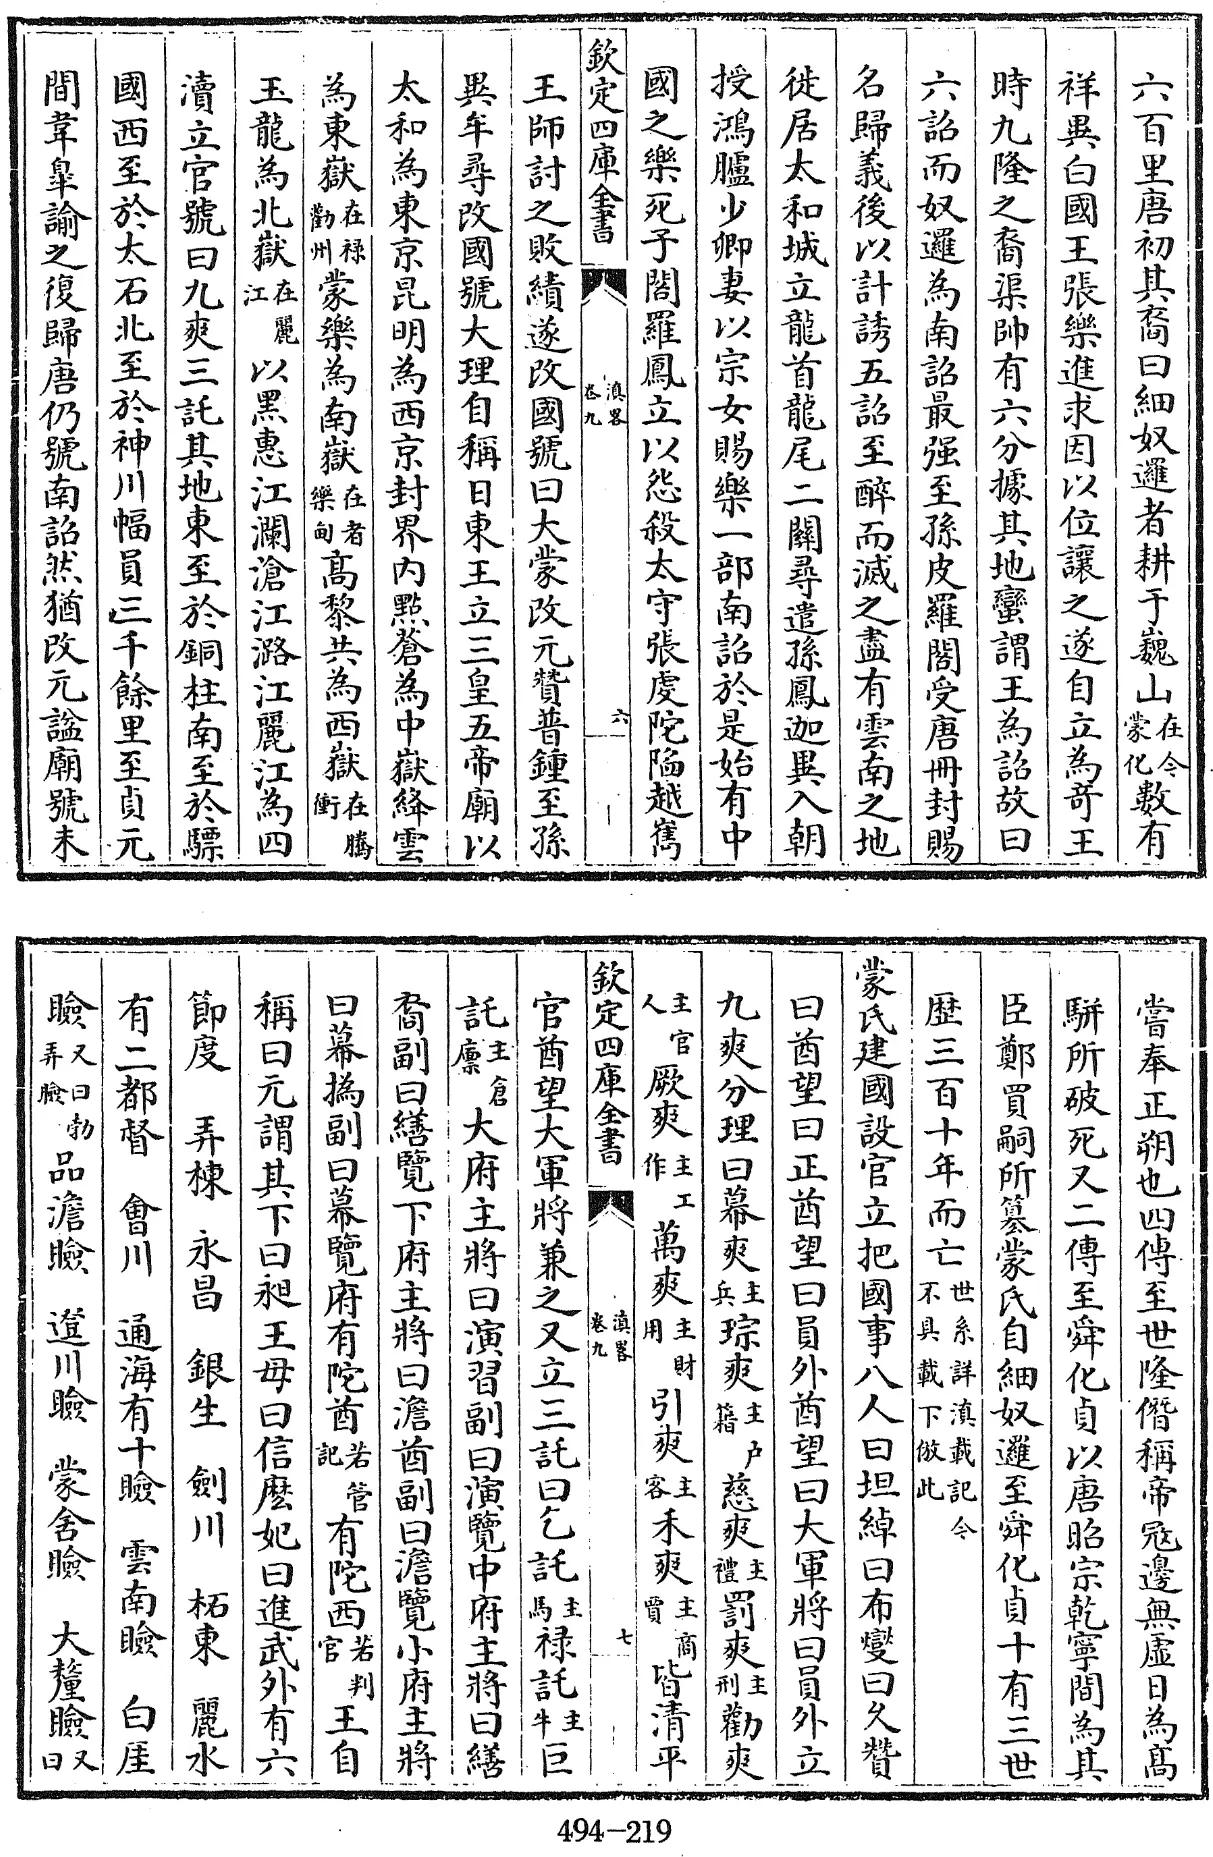 六百里唐初其裔曰細奴邏者耕于巍山在今蒙化數有
祥異白國王張樂進求因以位讓之遂自立為奇王
時九隆之裔渠帥有六分據其地蠻謂王為詔故曰
六詔而奴邏為南詔最强至孫皮羅閣受唐冊封賜
名歸義後以計誘五詔至醉而滅之盡有雲南之地
徙居太和城立龍首龍尾二關尋遣孫鳳迦異入朝
授鴻臚少卿妻以宗女賜樂一部南詔於是始有中
國之樂死子閣羅鳳立以怨殺太守張虔陀陷越嶲
欽定四庫全書
滇畧
卷九
六
王師討之敗績遂改國號曰大蒙改元贊普鍾至孫
異牟尋改國號大理自稱日東王立三皇五帝廟以
太和為東京昆明為西京封界內點蒼為中嶽絳雲
為東嶽在祿勸州蒙樂為南嶽在者樂甸高黎共為西嶽在騰衝
玉龍為北嶽在麗江以黑惠江瀾滄江潞江麗江為四
瀆立官號曰九爽三託其地東至於銅柱南至於驃
國西至於太石北至於神川幅員三千餘里至貞元
間韋臯諭之復歸唐仍號南詔然猶改元諡廟號未
嘗奉正朔也四傳至世隆僭稱帝冦邊無虛日為髙
駢所破死又二傳至舜化貞以唐昭宗乾寧間為其
臣鄭買嗣所簒蒙氏自細奴邏至舜化貞十有三世
歴三百十年而亡世系詳滇載記今不具載下倣此
蒙氏建國設官立把國事八人曰坦綽曰布燮曰久贊
曰酋望曰正酋望曰員外酋望曰大軍將曰員外立
九爽分理曰幕爽主兵琮爽主户籍慈爽主禮罰爽主刑勸爽
主官人厥爽主工作萬爽主財用引爽主客禾爽主商賈皆清平
欽定四庫全書
滇畧
卷九
七
官酋望大軍將兼之又立三託曰乞託主馬祿託主牛巨
託主倉廪大府主將曰演習副曰演覽中府主將曰繕
裔副曰繕覽下府主將曰澹酋副曰澹覽小府主將
曰幕撝副曰幕覽府有陀酋若管記有陀西若判官王自
稱曰元謂其下曰昶王母曰信麽妃曰進武外有六
節度　弄棟　永昌　銀生　劍川　柘東　麗水
有二都督　會川　通海有十瞼　雲南瞼　白厓
瞼又曰勃弄瞼　品澹瞼　邆川瞼　蒙舍瞼　大釐瞼又曰
494-219